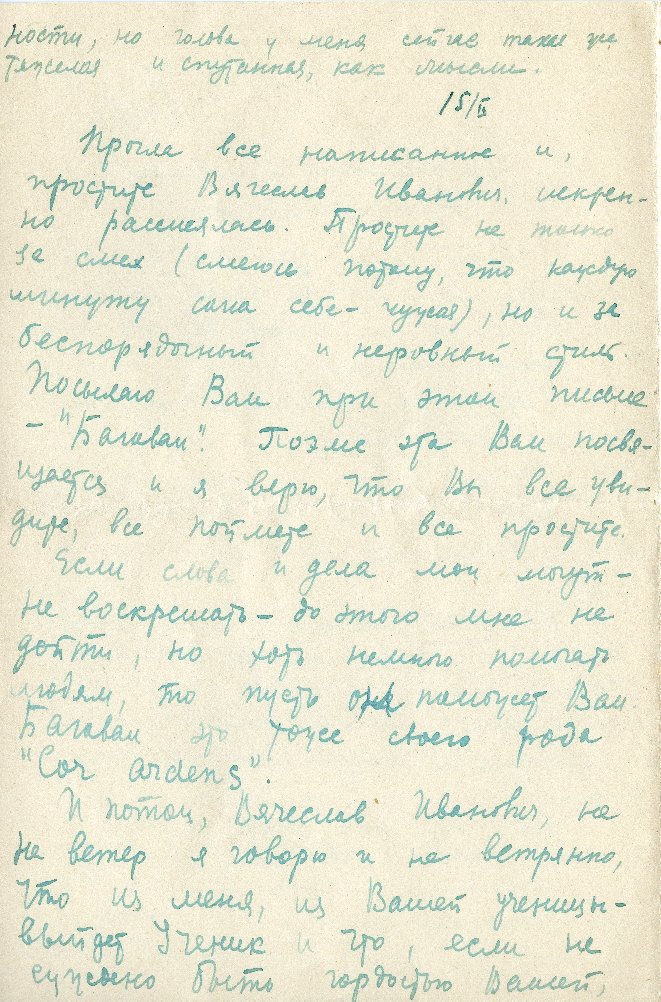 ности, но голова у меня сейчас такая же
тяжелая и спутанная, как мысли.
15/II
Прочла все написанное и,
простите Вячеслав Иванович, искрен-
но рассмеялась. Простите не только
за смех (смеюсь потому, что каждую
минуту сама себе – чужая), но и за
беспорядочный и неровный стиль.
Посылаю Вам при этом письме
– "Багаван". Поэма эта Вам посвя-
щается и я верю, что Вы все уви-
дите, все поймете и все простите.
Если слова и дела мои могут –
не воскрешать – до этого мне не
дойти, но хоть немного помогать
людям, то пусть она поможет Вам.
Багаван это тоже своего рода
"Cor ardens".
И потом, Вячеслав Иванович, не
на ветер я говорю и не ветрянно,
что из меня, из Вашей ученицы –
выйдет Ученик и что, если не
суждено быть гордостью Вашей,